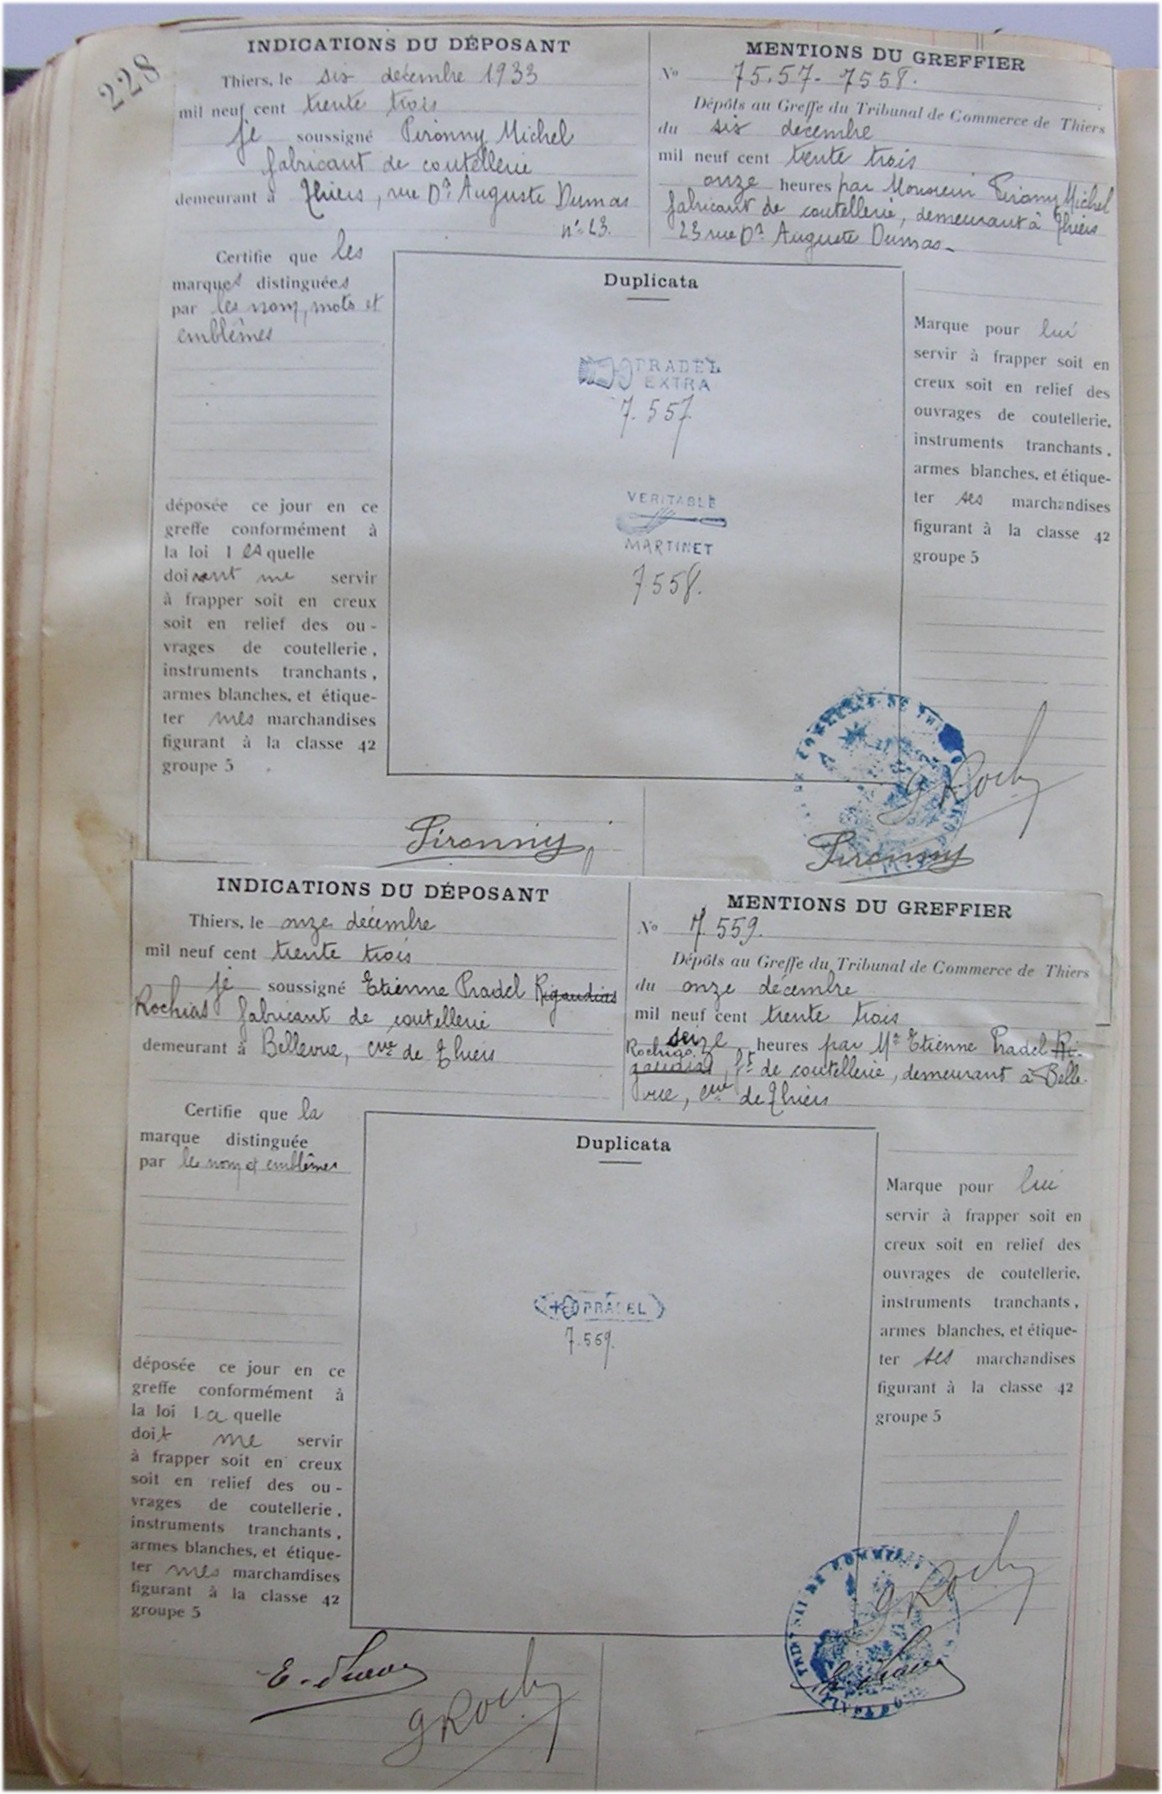 228
INDICATIONS DU DÉPOSANT
Thiers, le six décembre 1933
mil neuf cent trente trois
je soussigné Pironny Michel
fabricant de coutellerie
demeurant à Thiers, rue Dr Auguste Dumas
n° 23.
MENTIONS DU GREFFIER
No 75.57- 7558.
Dépôts au Greffe du Tribunal de Commerce de Thiers
du six décembre
mil neuf cent trente trois
onze heures par Monsieur Pironny Michel
fabricant de coutellerie, demeurant à Thiers
23 rue Dr Auguste Dumas-
Certifie que les
marques distinguées
par les nom, mots et
emblêmes
déposée ce jour en ce
greffe conformément à
la loi les quelle
doivent me servir
à frapper soit en creux
soit en relief des ou-
vrages de coutellerie,
instruments tranchants,
armes blanches, et étique-
ter mes marchandises
figurant à la classe 42
groupe 5
Duplicata
PRADEL
EXTRA
7.557
VERITABLE
MARTINET
7558.
Marque pour lui
servir à frapper soit en
creux soit en relief des
ouvrages de coutellerie,
instruments tranchants,
armes blanches, et étique-
ter ses marchandises
figurant à la classe 42
groupe 5
G Roch
Pironny
Pironny
INDICATIONS DU DÉPOSANT
Thiers, le onze décembre
mil neuf cent trente trois
je soussigné Etienne Pradel Rigaudias
Rochias fabricant de coutellerie
demeurant à Bellevue, cne de Thiers
MENTIONS DU GREFFIER
No 7.559.
Dépôts au Greffe du Tribunal de Commerce de Thiers
du onze décembre
mil neuf cent trente trois
seize heures par Mr Etienne Pradel Ri-
Rochias
gaudias, ft de coutellerie, demeurant à Belle-
vue, cne de Thiers
Certifie que la
marque distinguée
par le nom et emblêmes
déposée ce jour en ce
greffe conformément à
la loi la quelle
doit me servir
à frapper soit en creux
soit en relief des ou-
vrages de coutellerie,
instruments tranchants,
armes blanches, et étique-
ter mes marchandises
figurant à la classe 42
groupe 5
Duplicata
PRADEL
7.559.
Marque pour lui
servir à frapper soit en
creux soit en relief des
ouvrages de coutellerie,
instruments tranchants,
armes blanches, et étique-
ter ses marchandises
figurant à la classe 42
groupe 5
G Roch
G Roch